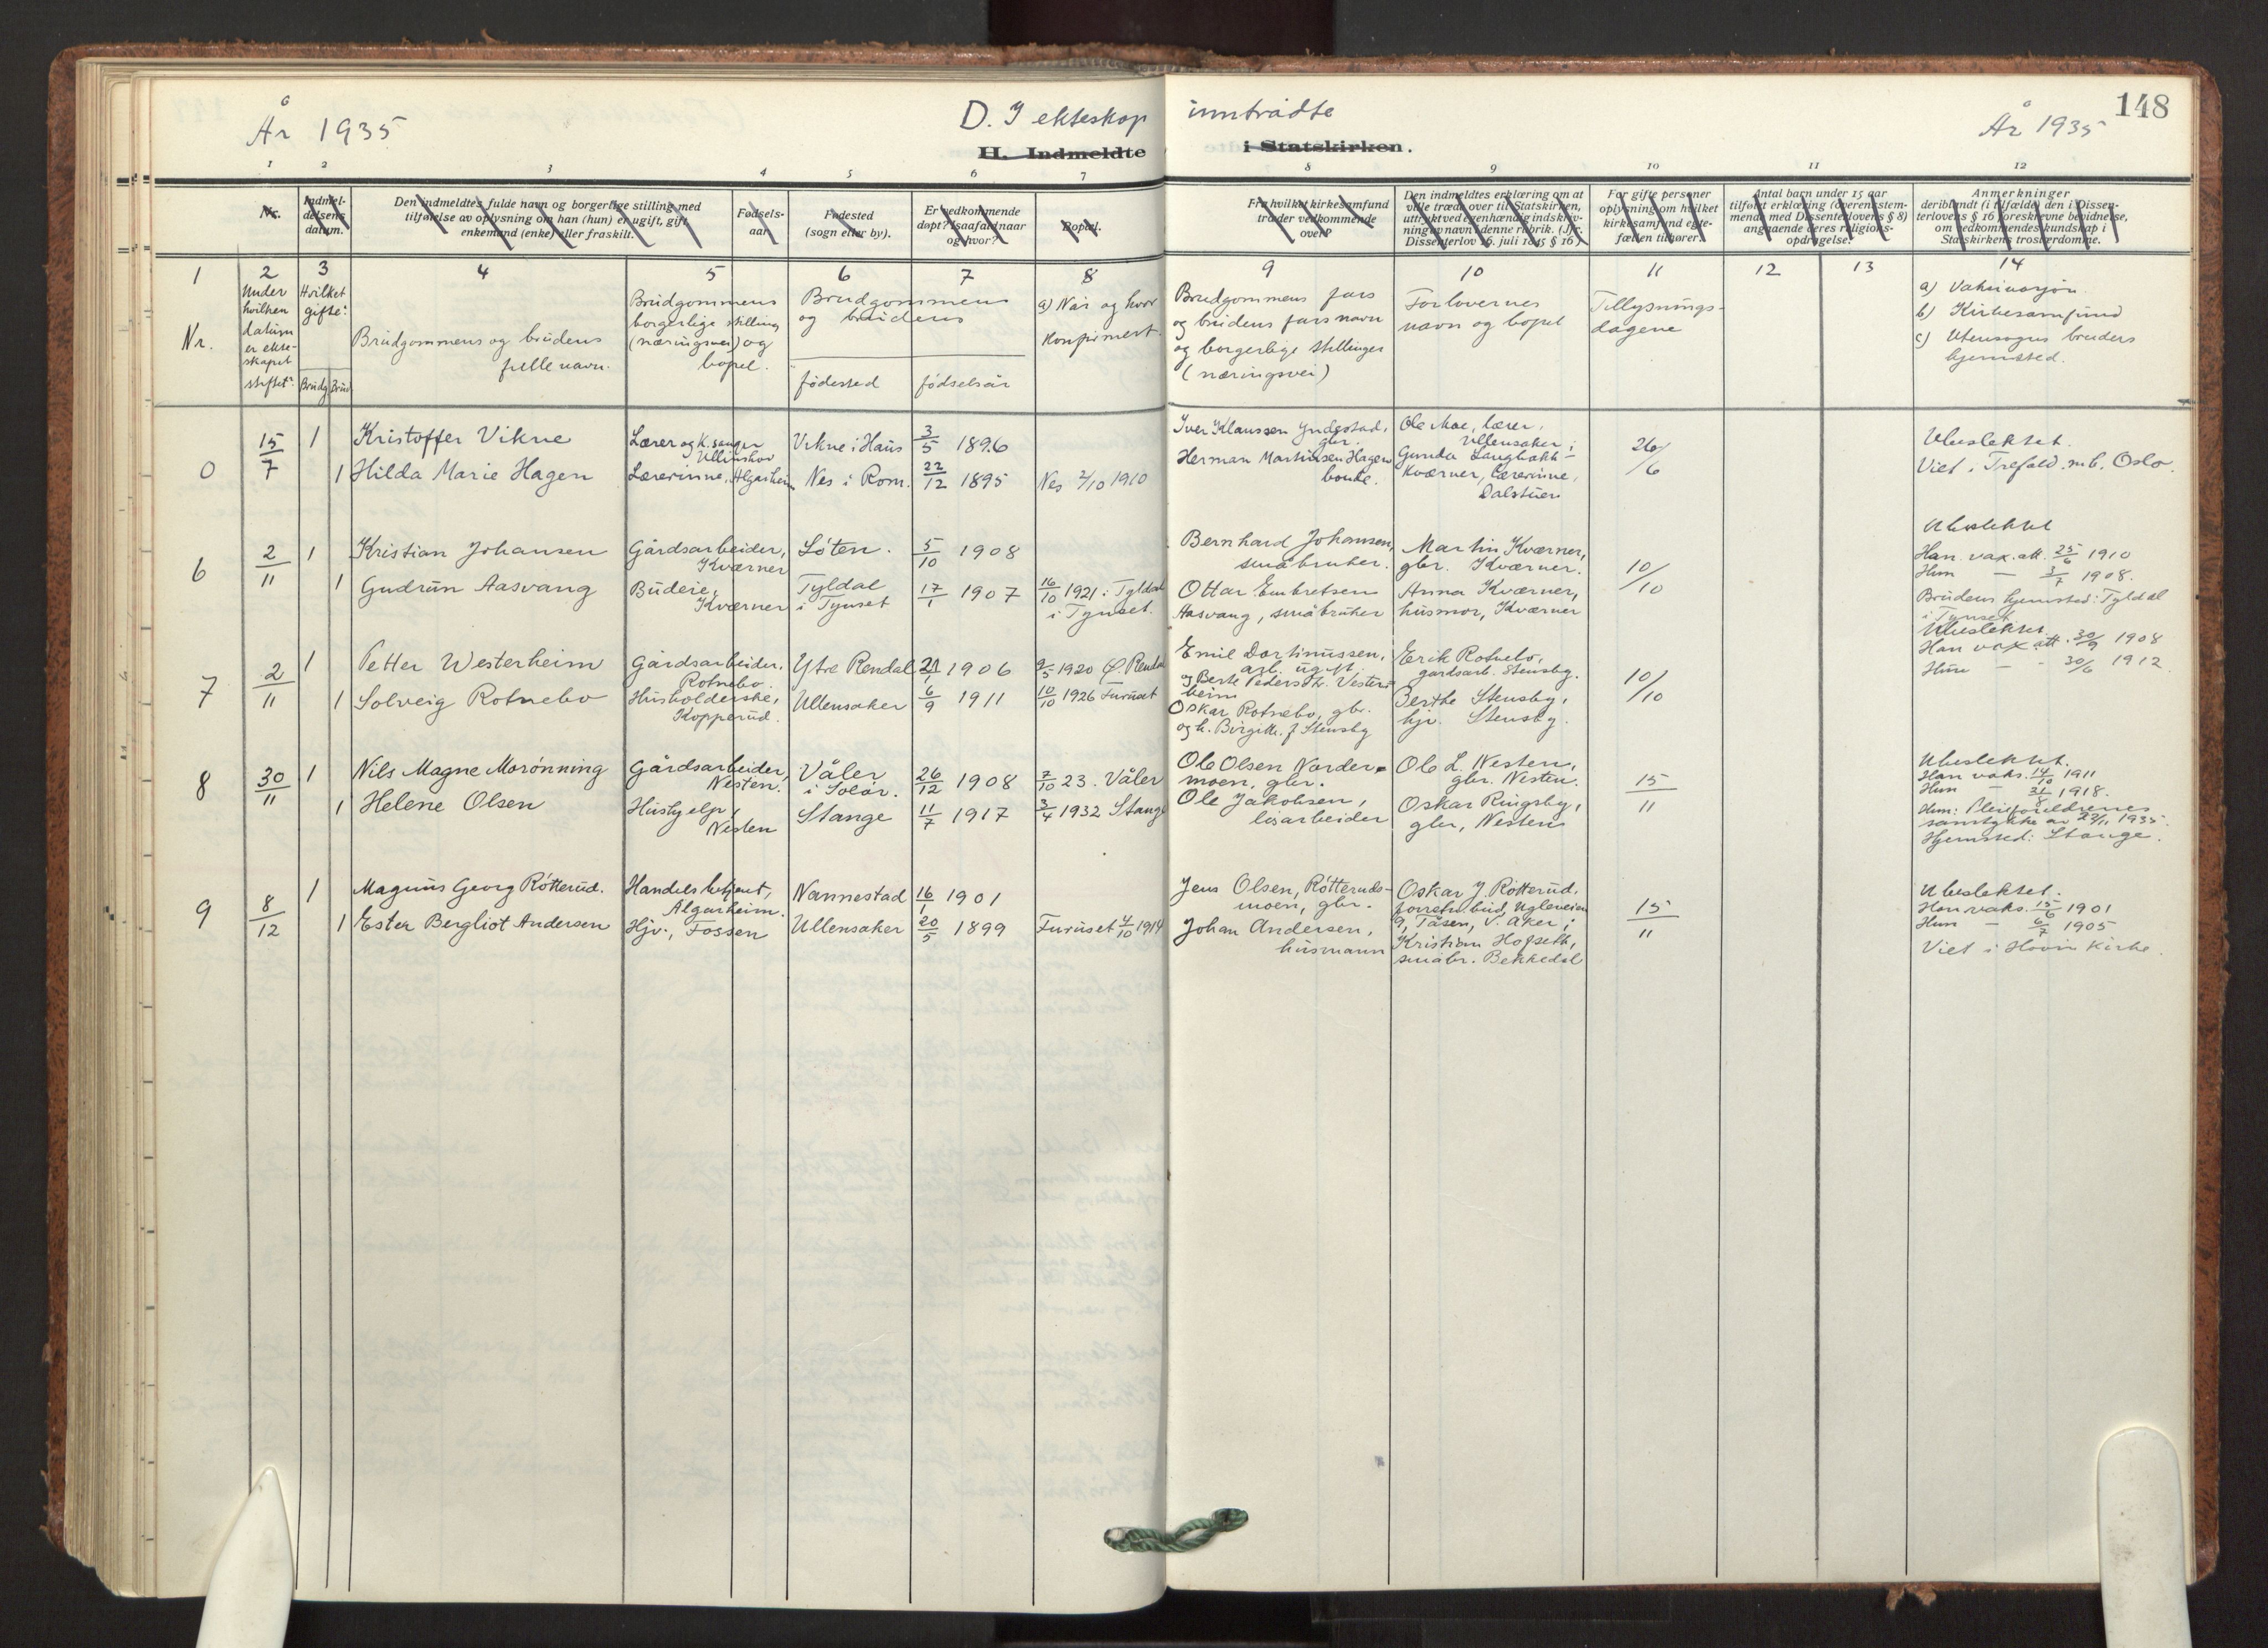 148
År 1935
D. I ekteskap inntrådte
År 1935
H. Indmeldte i Statskirken.
1 2 3 4 5 6 7 8 9 10 11 12
Nr.
Indmel-
delsens
datum.
Den indmeldtes fulde navn og borgerlige stilling med
tilføielse av oplysning om han (hun) er ugift, gift,
enkemand (enke) eller fraskilt.
Fødsels-
aar.
Fødested
(sogn eller by).
Er vedkommende
døpt? Isaafald naar
og hvor?
Bopæl.
Fra hvilket kirkesamfund
træder vedkommende
over?
Den indmeldtes erklæring om at
ville træde over til Statskirken,
uttrykt ved egenhændig indskriv-
ning av navn i denne rubrik. (Jfr.
Dissenterlov 16. juli 1845 § 16.)
For gifte personer
oplysning om hvilket
kirkesamfund egte-
fællen tilhører.
Antal barn under 15 aar
tilført erklæring (overensstem-
mende med Dissenterlovens § 8)
angaaende deres religions-
opdragelse.
Anmerkninger
deriblandt (i tilfælde) den i Dissen-
terlovens § 16 foreskrevne bevidnelse,
om vedkommendes kundskap i
Statskirkens troslærdomme.
1 2 3 4 5 6 7 8 9 10 11 12 13 14
Nr.
Under
hvilken
datum
er ekte-
skapet
stiftet?
Hvilket
gifte?
Brudg. Brud
Brudgommens og brudens
fulle navn.
Brudgommens
borgerlige stilling
(næringsvei) og
bopel.
Brudgommens
og brudens
fødested
fødselsår
a) Når og hvor
konfirmert.
Brudgommens fars
og brudens fars navn
og borgerlige stillinger
(næringsvei)
Forlovernes
navn og bopel
Tillysnings-
dagene
a) Vaksinasjon
b) Kirkesamfund
c) Utensogns bruders
hjemsted.
0
15/7
1 Kristoffer Vikne
Lærer og k.sanger
Ullinshov
Vikne i Haus
3/5 1896
Iver Klaussen Yndestad,
gbr.
Ole Moe, lærer,
Ullensaker;
26/6
Ubeslektet.
1 Hilda Marie Hagen
Lærerinne, Algarheim
Nes i Rom.
22/12 1895
Nes 2/10 1910
Herman Martinsen Hagen
bonde.
Gunda Langbakk-
Kværner, lærerinne,
Dalstuen
Viet i Trefold. mb. Oslo.
6
2/11
1 Kristian Johansen
Gårdsarbeider,
Kværner
Löten.
5/10 1908
Bernhard Johansen,
småbruker.
Martin Kværner,
gbr. Kværner.
10/10
Ubeslektet
Han. vax. att. 25/6 1910
Hun — 3/7 1908.
1 Gudrun Aasvang
Budeie,
Kværner
Tyldal
i Tynset
17/1 1907
16/10 1921 i Tyldal
i Tynset.
Ottar Embretsen
Aasvang, småbruker
Anna Kværner,
husmor, Kværner
Brudens hjemsted: Tyldal
i Tynset.
7
2/11
1 Petter Westerheim
Gårdsarbeider,
Rotnebo.
Ytre Rendal
21/1 1906
9/5 1920 Ø Rendal
Emil Dortinussen,
arb. ugift.
og Berte Pedersdtr. Vester-
heim
Erik Rotnebo,
gårdsarb. Stensby.
10/10
Ubeslektet.
Han vax att. 30/9 1908
Hun - - 30/6 1912
1 Solveig Rotnebo
Husholderske,
Kopperud.
Ullensaker
6/9 1911
10/10 1926 Furuset
Oskar Rotnebo, gbr.
og h. Birgitte f Stensby
Berthe Stensby,
hjv. Stensby.
8
30/11
1 Nils Magne Morönning
Gårdsarbeider,
Nesten.
Våler
i Solør.
26/12 1908
7/10 23. Våler
Ole Olsen Norder-
moen, gbr.
Ole L. Nesten,
gbr. Nesten.
15/11
Ubeslektet.
Han vaks. 14/10 1911
Hun — 31/8 1918.
1 Helene Olsen
Hushjelp,
Nesten
Stange
11/7 1917
3/4 1932 Stange
Ole Jakobsen,
løsarbeider
Oskar Ringsby,
gbr, Nesten
Hun: Pleieforeldrenes
samtykke av 23/11 1935.
Hjemsted: Stange.
9
8/12
1 Magnus Georg Rötterud.
Handelsbetjent,
Algarheim.
Nannestad
16/1 1901
Jens Olsen, Rötteruds-
moen, gbr.
Oskar J. Rötterud,
forretn.bud, Ugleveien
9, Tåsen, V. Aker;
15/11
Ubeslektet.
Han vaks. 15/6 1901
Hun — 6/7 1905
1 Ester Bergliot Andersen
Hjv., Fossen
Ullensaker
20/5 1899
Furuset 4/10 1914
Johan Andersen,
husmann
Kristian Hofseth,
småbr. Bekkedal
Viet i Hovin kirke.